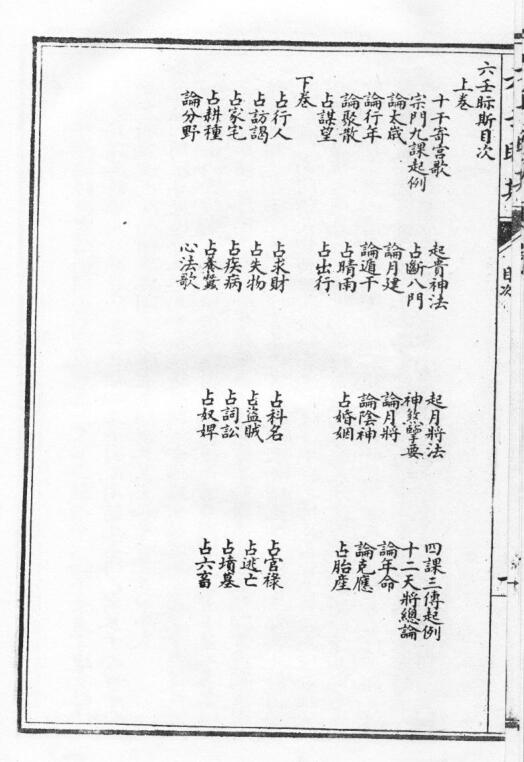 六壬眎斯目次
上卷
十干寄宮歌 起貴神法 起月將法 四課三傳起例
宗門九課起例 占斷八門 神煞擧要 十二天將總論
論太歲 論月建 論月將 論年命
論行年 論遁干 論陰神 論克應
論聚散 占晴雨 占婚姻 占胎産
占謀望 占出行
下卷
占行人 占求財 占科名 占官祿
占訪謁 占失物 占盜賊 占逃亡
占家宅 占疾病 占詞訟 占墳墓
占耕種 占養蠶 占奴婢 占六畜
論分野 心法歌
目次
一